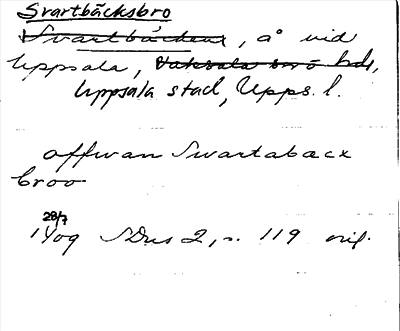 Svartbäcksbro
Svartbäcken, å vid
Uppsala, Vaksala sn o hd,
Uppsala stad, Upps. l.
offwan Swartabacx
broo
28/7
1409 SDns 2, s. 119 orig.